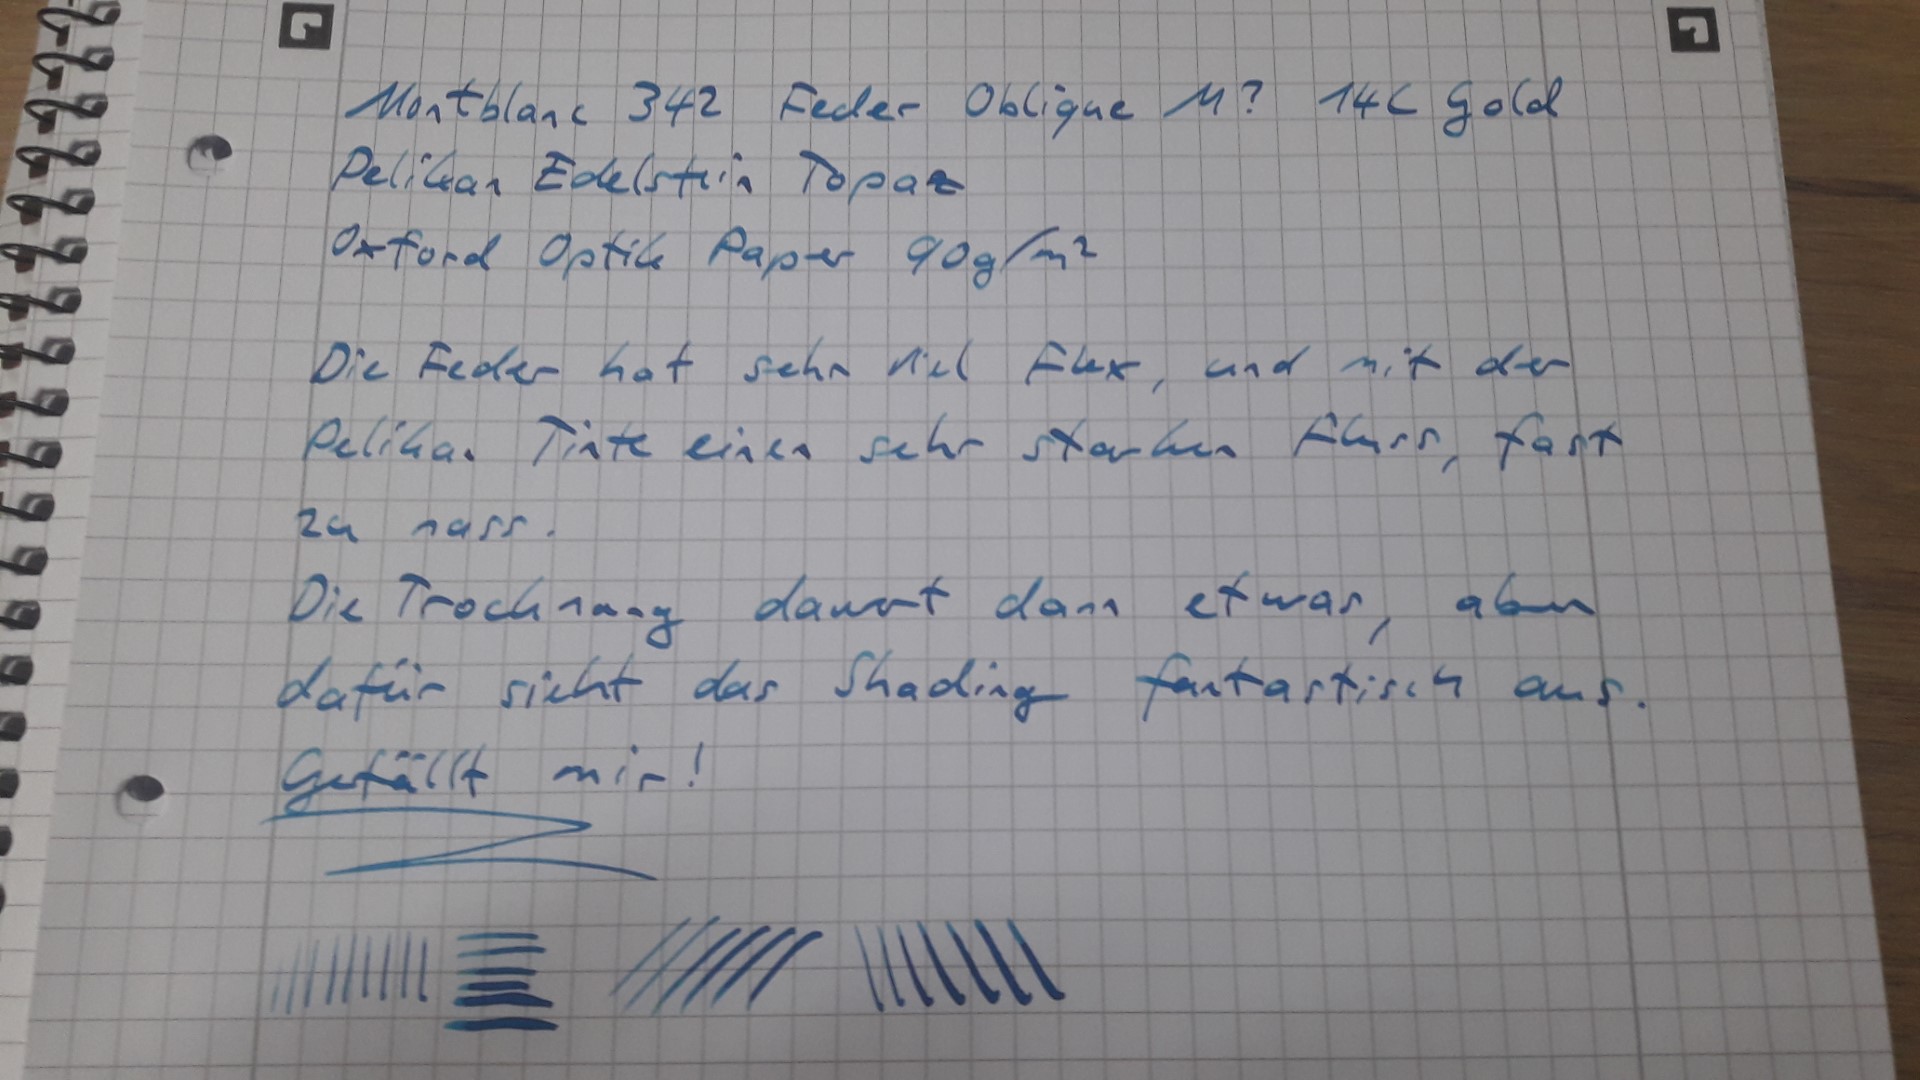 Montblanc 342 Feder Oblique M? 14C Gold
Pelikan Edelstein Topaz
Oxford Optik Paper 90g/m²
Die Feder hat sehr viel Flex, und mit der
Pelikan Tinte einen sehr starken Fluss, fast
zu nass.
Die Trocknung dauert dann etwas, aber
dafür sieht das Shading fantastisch aus.
Gefällt mir!